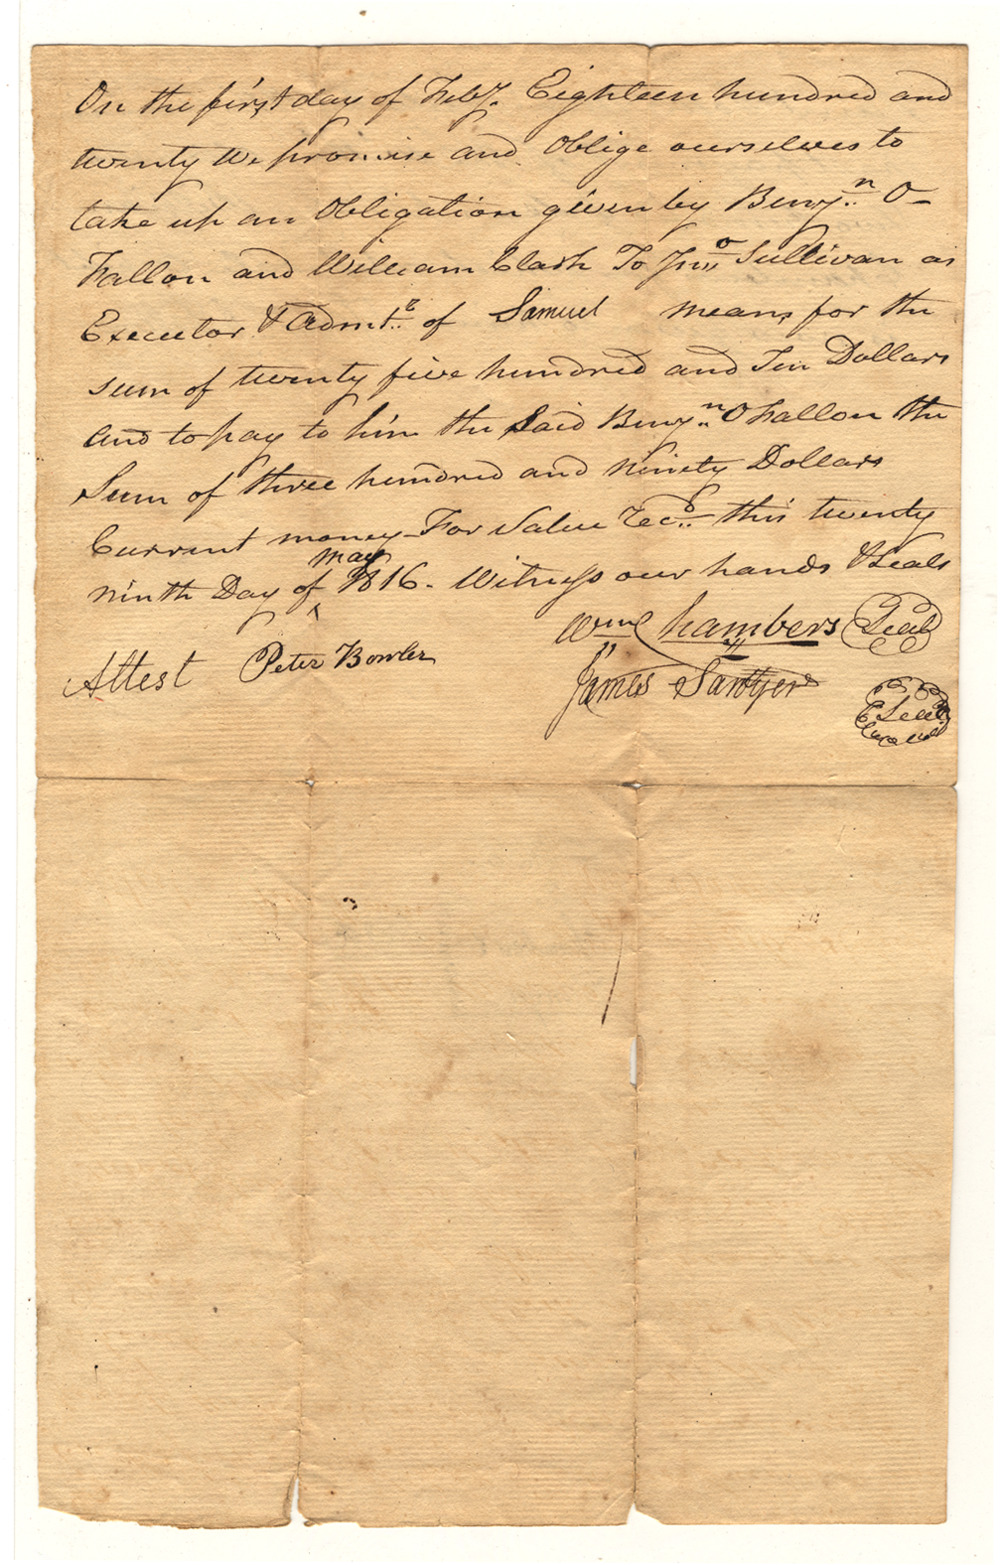 On the first day of Feby. Eighteen hundred and
twenty We promise and Oblige ourselves to
take up an Obligation given by Benjn. O-
Fallon and William Clark To Jno Sullivan as
Executor & Admt.r of Samuel means for the
sum of twenty five hundred and Ten Dollars
and to pay to him the Said Benjn. O Fallon the
Sum of three hundred and ninety Dollars
Current money - For Value Recd. this twenty
may
ninth Day of ^ 1816. Witness our hands & Seals
Wm Chambers Seal
Attest Peter Bowler
James Sawyer
Seal